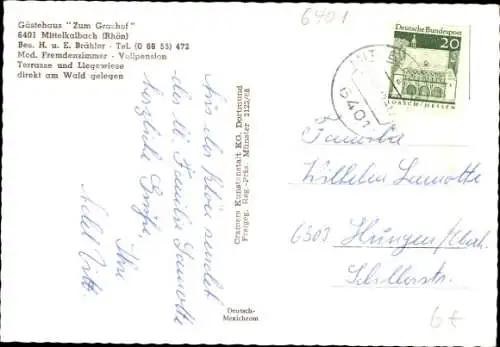 Gästehaus "Zum Grashof"
6401 Mittelkalbach (Rhön)
Bes. H. u. E. Brähler - Tel. (0 66 55) 472
Mod. Fremdenzimmer - Vollpension
Terrasse und Liegewiese
direkt am Wald gelegen
6401
Deutsche Bundespost
20
LORSCH/HESSEN
6401
Aus der Rhön sendet
der U. Familie Lamotte
herzliche Grüße
Ihre
Cramers Kunstanstalt KG. Dortmund
Freigeg. Reg.-Präs. Münster 2125/68
Deutsch-
Mexichrom
Familie
Wilhelm Lamotte
6303 Hungen/Oberh.
Schillerstr.
6€